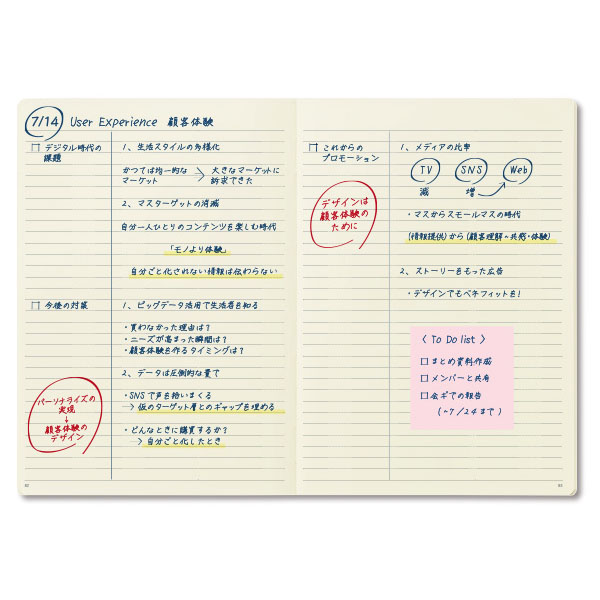 7/14 User Experience 顧客体験
□ デジタル時代の
課題
1、生活スタイルの多様化
かつては均一的な
マーケット
→ 大きなマーケットに
訴求できた
2、マスターゲットの消滅
自分一人ひとりのコンテンツを楽しむ時代
「モノより体験」
自分ごと化されない情報は伝わらない
□ 今後の対策
1、ビッグデータ活用で生活者を知る
・買わなかった理由は?
・ニーズが高まった瞬間は?
・顧客体験を作るタイミングは?
2、データは圧倒的な量で
・SNSで声を拾いまくる
→ 仮のターゲット層とのギャップを埋める
・どんなときに購買するか?
→ 自分ごと化したとき
パーソナライズの
実現
↓
顧客体験の
デザイン
□ これからの
プロモーション
デザインは
顧客体験の
ために
1、メディアの比率
TV SNS Web
減 増
・マスからスモールマスの時代
(情報提供)から(顧客理解〜共感・体験)
2、ストーリーをもった広告
・デザインでもベネフィットを!
〈To Do list〉
□ まとめ資料作成
□ メンバーと共有
□ 会ギでの報告
(〜7/24まで)